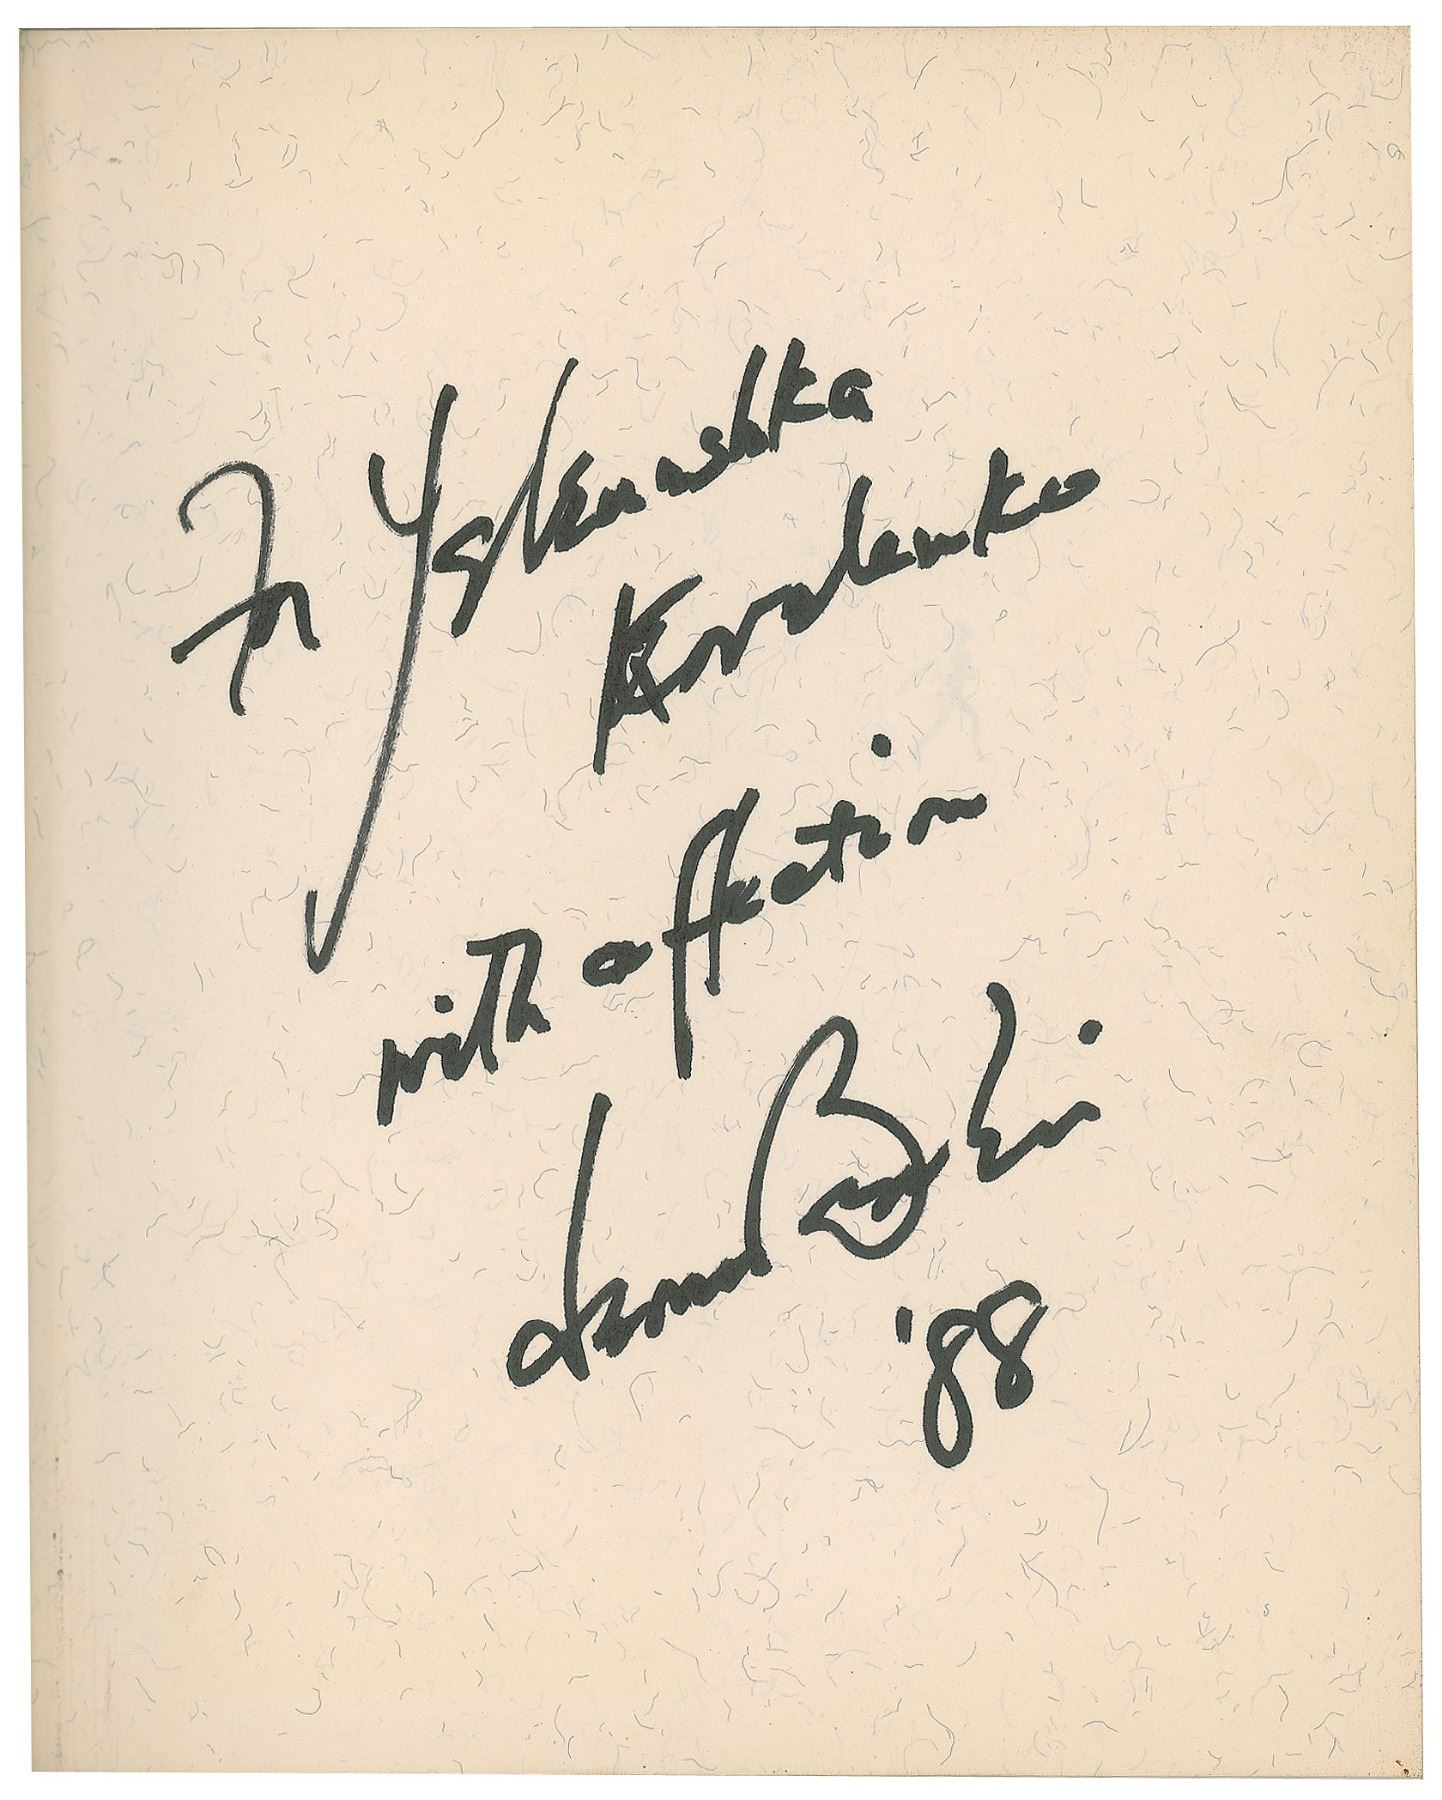 For Yglenashka
Korolenko
with affection
Leonard Baskin
'88